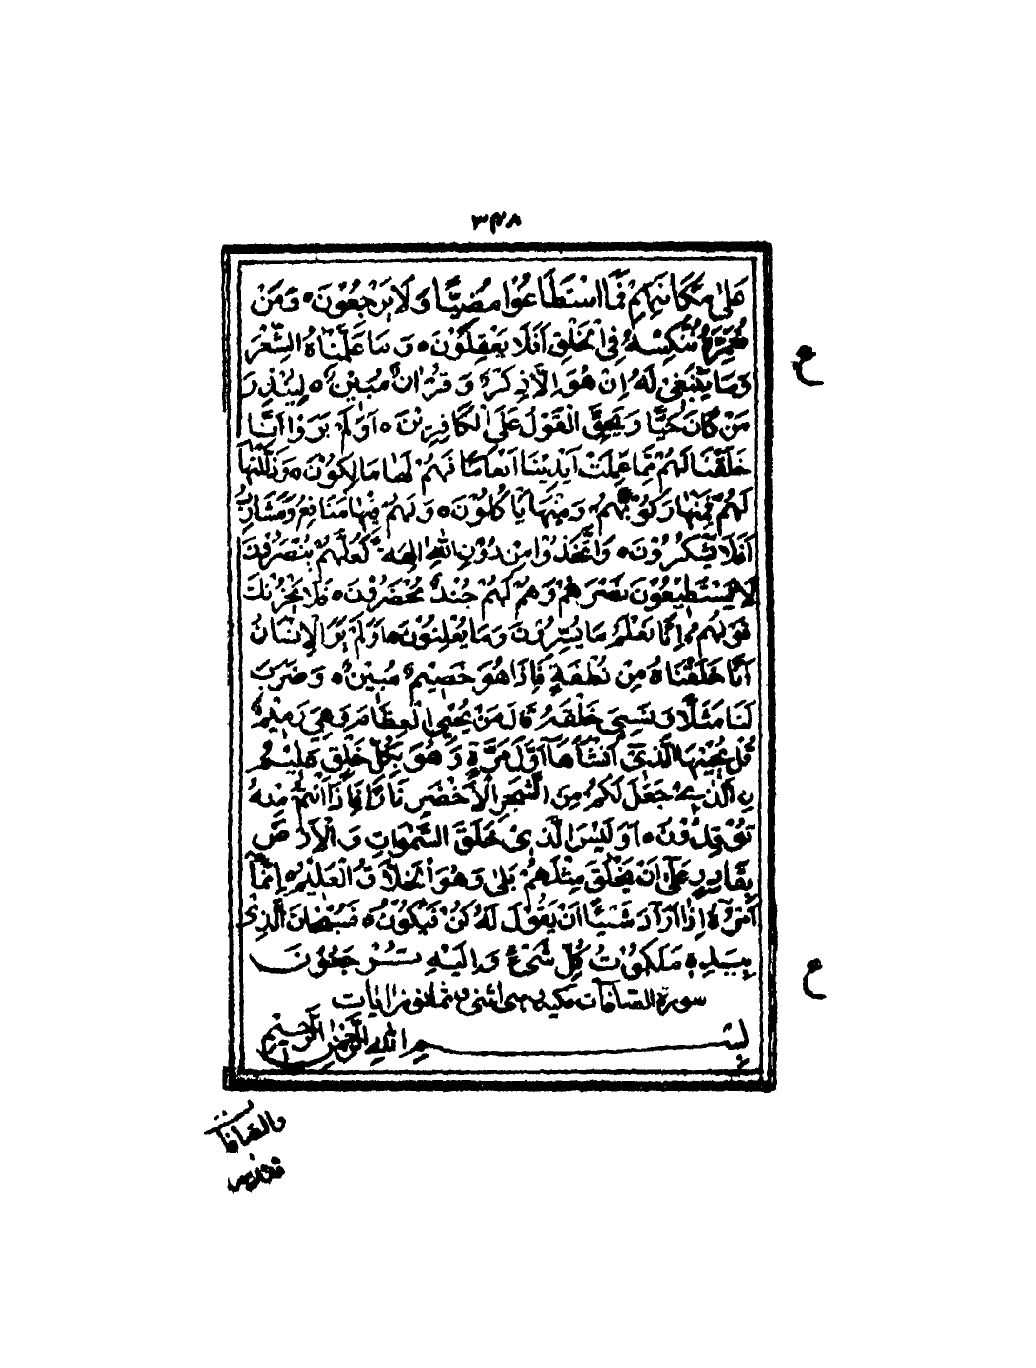 ٣٤٨
عَلىٰ مَكَانَتِهِمْ فَمَا اسْتَطَاعُوْا مُضِيًّا وَلَا يَرْجِعُوْنَ ۝ وَمَنْ
نُعَمِّرْهُ نُنَكِّسْهُ فِى الْخَلْقِ اَفَلَا يَعْقِلُوْنَ ۝ وَمَا عَلَّمْنَاهُ الشِّعْرَ
وَمَا يَنْبَغِىْ لَهُ اِنْ هُوَ اِلَّا ذِكْرٌ وَ قُرْاٰنٌ مُبِيْنٌ ۝ لِيُنْذِرَ
مَنْ كَانَ حَيًّا وَيَحِقَّ الْقَوْلُ عَلَى الْكَافِرِيْنَ ۝ اَوَلَمْ يَرَوْا اَنَّا
خَلَقْنَا لَهُمْ مِمَّا عَمِلَتْ اَيْدِيْنَا اَنْعَامًا فَهُمْ لَهَا مَالِكُوْنَ ۝ وَذَلَّلْنٰهَا
لَهُمْ فَمِنْهَا رَكُوْبُهُمْ وَمِنْهَا يَاْكُلُوْنَ ۝ وَلَهُمْ فِيْهَا مَنَافِعُ وَمَشَارِبُ
اَفَلَا يَشْكُرُوْنَ ۝ وَاتَّخَذُوْا مِنْ دُوْنِ اللّٰهِ اٰلِهَةً لَعَلَّهُمْ يُنْصَرُوْنَ
لَا يَسْتَطِيْعُوْنَ نَصْرَهُمْ وَهُمْ لَهُمْ جُنْدٌ مُحْضَرُوْنَ ۝ فَلَا يَحْزُنْكَ
قَوْلُهُمْ اِنَّا نَعْلَمُ مَا يُسِرُّوْنَ وَمَا يُعْلِنُوْنَ ۝ اَوَلَمْ يَرَ الْاِنْسَانُ
اَنَّا خَلَقْنَاهُ مِنْ نُطْفَةٍ فَاِذَا هُوَ خَصِيْمٌ مُبِيْنٌ ۝ وَضَرَبَ
لَنَا مَثَلًا وَنَسِىَ خَلْقَهُ قَالَ مَنْ يُحْيِى الْعِظَامَ وَهِىَ رَمِيْمٌ
قُلْ يُحْيِيْهَا الَّذِىْ اَنْشَاَهَا اَوَّلَ مَرَّةٍ وَهُوَ بِكُلِّ خَلْقٍ عَلِيْمٌ
نِ الَّذِىْ جَعَلَ لَكُمْ مِنَ الشَّجَرِ الْاَخْضَرِ نَارًا فَاِذَا اَنْتُمْ مِنْهُ
تُوْقِدُوْنَ ۝ اَوَلَيْسَ الَّذِىْ خَلَقَ السَّمٰوَاتِ وَ الْاَرْضَ
بِقَادِرٍ عَلٰى اَنْ يَخْلُقَ مِثْلَهُمْ بَلىٰ وَهُوَ الْخَلَّاقُ الْعَلِيْمُ ۝ اِنَّمَا
اَمْرُهُ اِذَا اَرَادَ شَيْئًا اَنْ يَقُوْلَ لَهُ كُنْ فَيَكُوْنُ ۝ فَسُبْحَانَ الَّذِىْ
بِيَدِهٖ مَلَكُوْتُ كُلِّ شَىْءٍ وَاِلَيْهِ تُرْجَعُوْنَ
سورة الصافات مكية
بِسْمِ اللّٰهِ الرَّحْمٰنِ الرَّحِيْمِ
ع
ع
والصافات